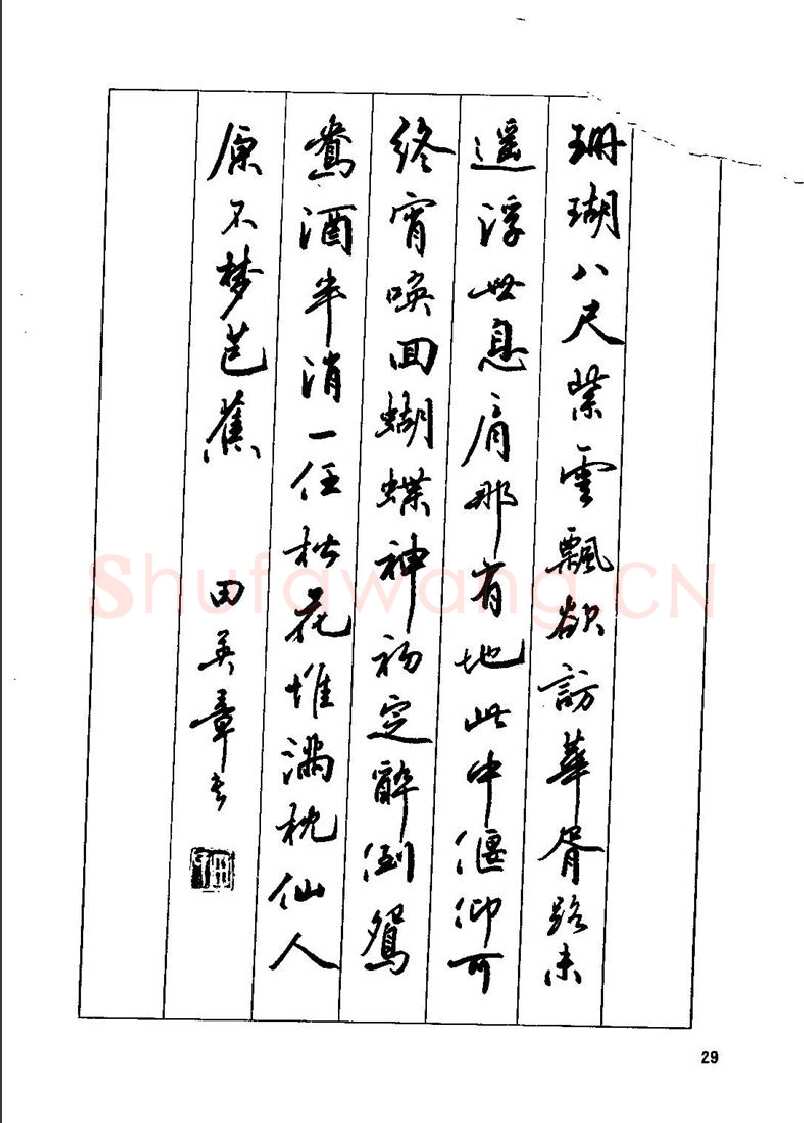 珊瑚八尺紫雲飄欲訪華胥路未
遥浮世息肩那有地此中偃仰可
終宵喚回蝴蝶神初定醉倒鴛
鴦酒半消一任松花堆满枕仙人
原不梦芭蕉
田英章书
Shufawang.CN
29